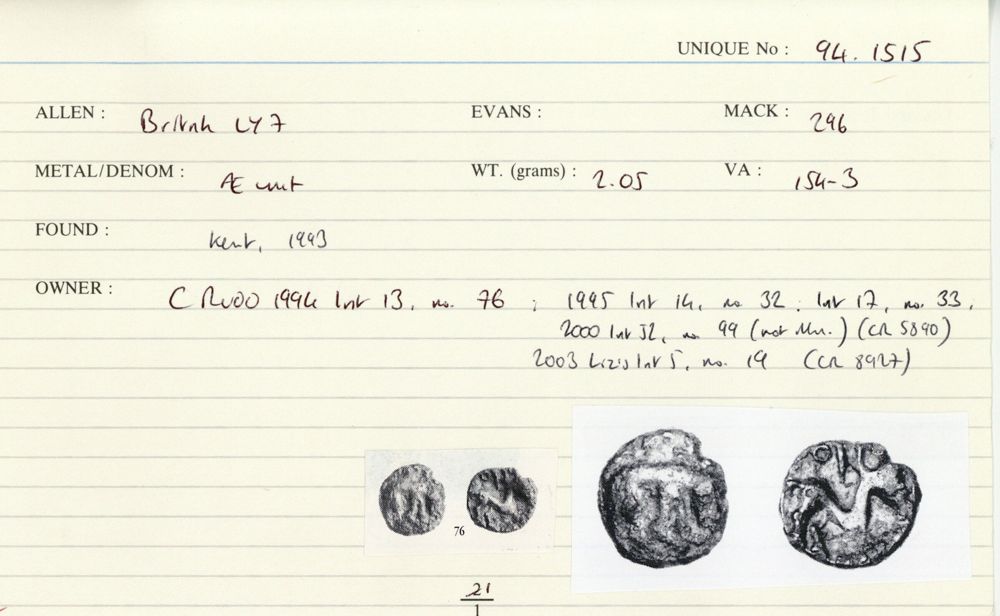 UNIQUE No : 94.1515
ALLEN : British LY7 EVANS : MACK : 296
METAL/DENOM : Æ unit WT. (grams) : 2.05 VA : 154-3
FOUND : Kent, 1993
OWNER : C RUDD 1994 list 13, no. 76 ; 1995 list 14, no 32 ; list 17, no. 33,
2000 list 52, no 99 (not illus.) (CR 5890)
2003 Liz's list 5, no. 19 (CR 8927)
76
21
1